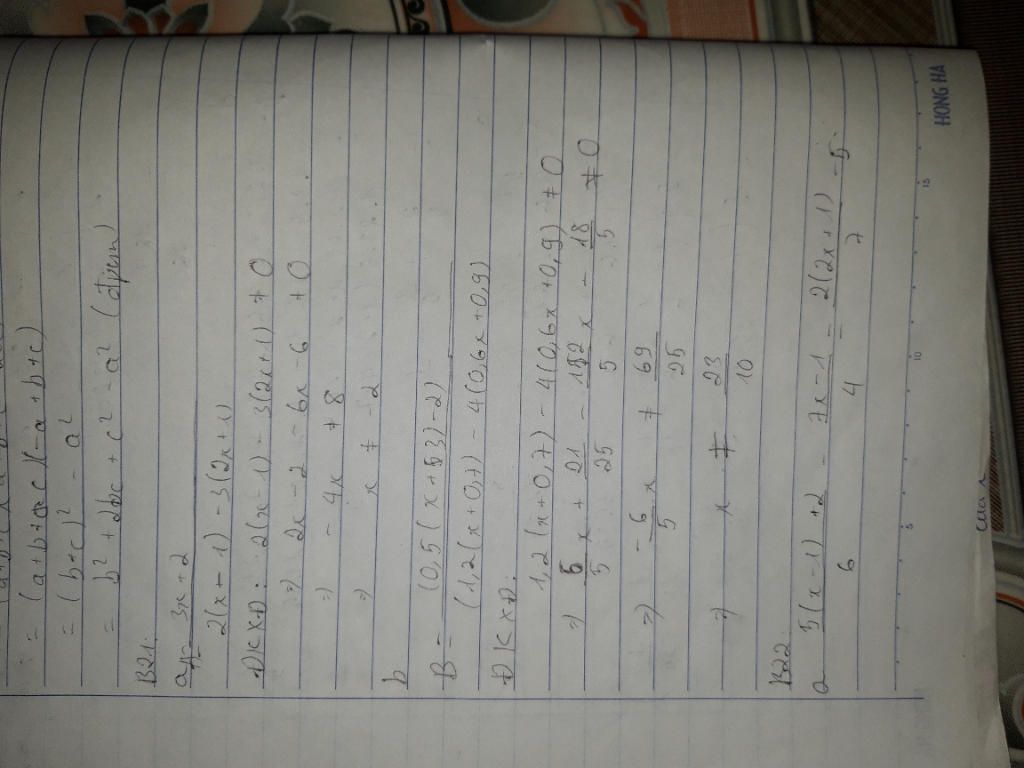 = (a+b+c)(-a+b+c)
= (b+c)² - a²
= b² + 2bc + c² - a² (đpcm)
B21.
a, = 3x+2
2(x-1) - 3(2x+1)
ĐKXĐ: 2(x-1) - 3(2x+1) ≠ 0
=) 2x - 2 - 6x - 6 ≠ 0
=) - 4x ≠ 8
=) x ≠ -2
b
B = (0,5(x+3)-2)
(1,2(x+0,7) - 4(0,6x+0,9)
ĐKXĐ:
1,2(x+0,7) - 4(0,6x+0,9) ≠ 0
=) 6/5 x + 21/25 - 12/5 x - 18/5 ≠ 0
=) -6/5 x ≠ 69/25
=) x ≠ 23/10
B22
a 5(x-1)+2/6 - 7x-1/4 = 2(2x+1)/7 - 5
HONG HA
5 10 15